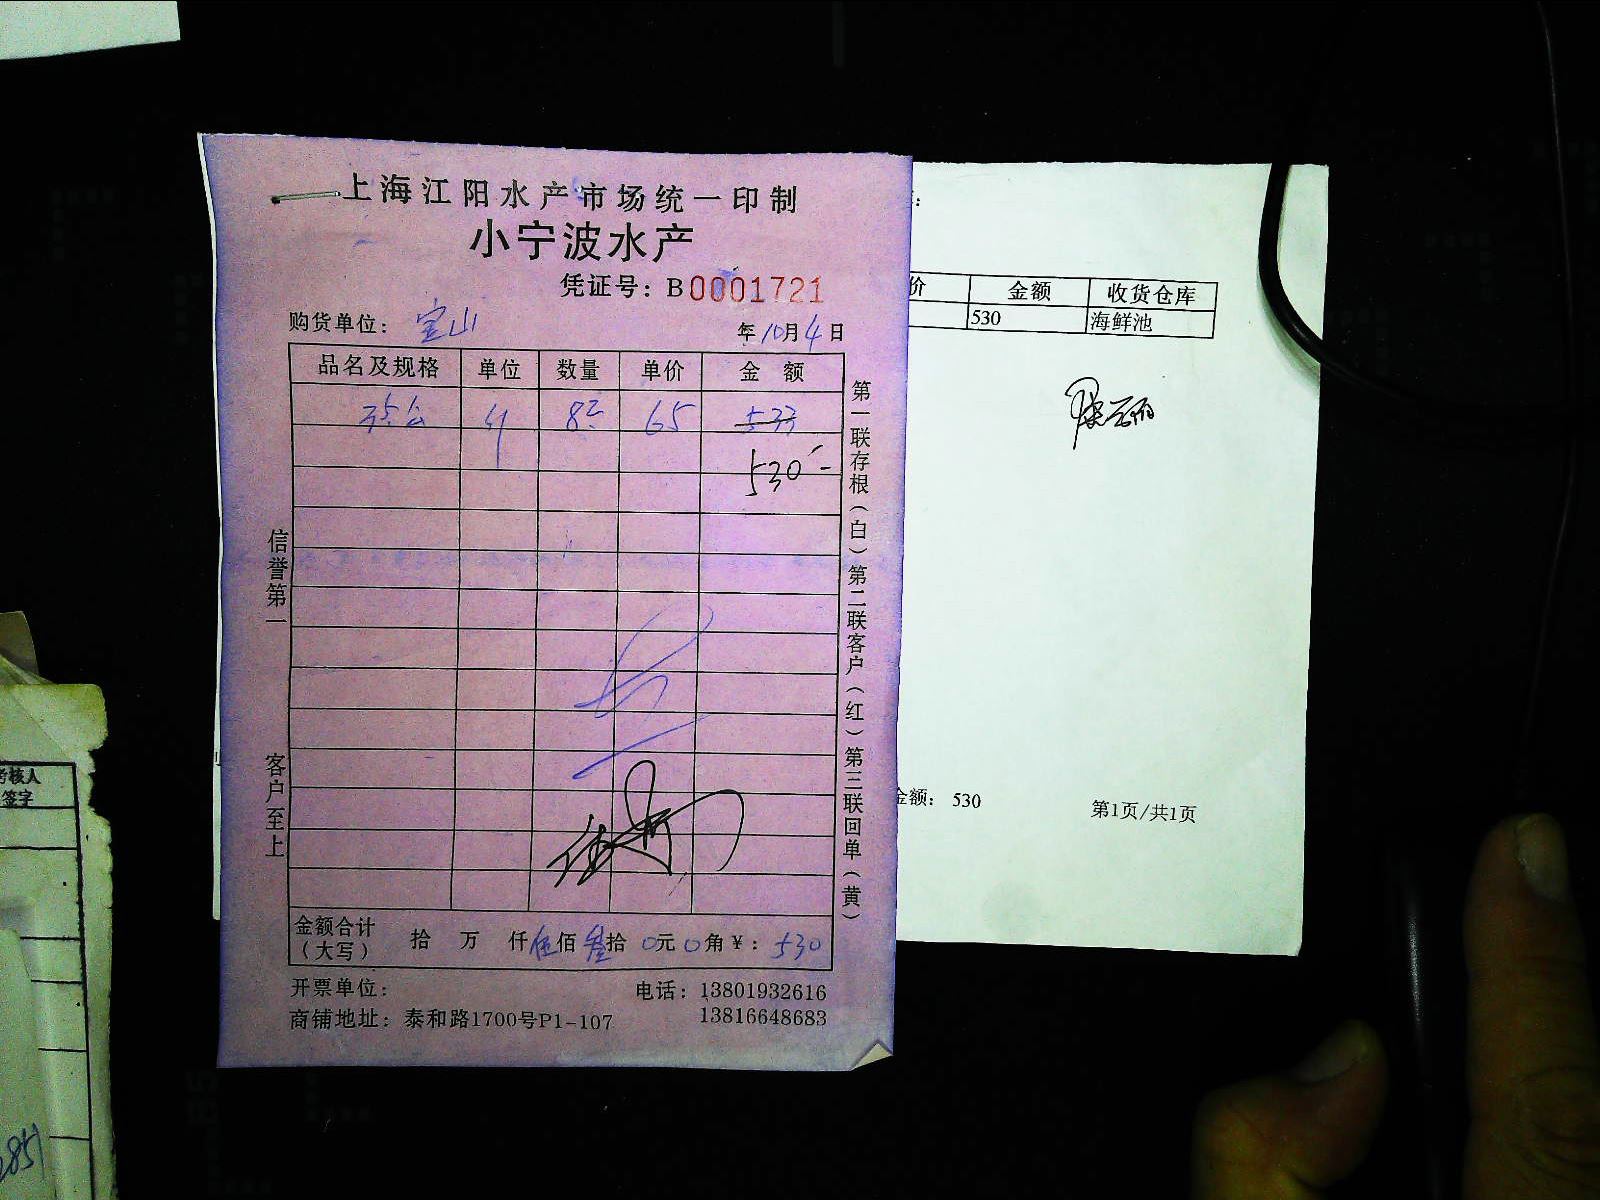 上海江阳水产市场统一印制
小宁波水产
凭证号：B0001721
购货单位：宝山
年10月4日
品名及规格 单位 数量 单价 金额
65 533
530-
信誉第一
客户至上
第一联存根（白）第二联客户（红）第三联回单（黄）
金额合计（大写） 拾 万 仟伍佰叁拾0元0角￥：530
开票单位：
电话：13801932616
商铺地址：泰和路1700号P1-107
13816648683
价 金额 收货仓库
530 海鲜池
金额： 530
第1页/共1页
考核人
签字
2851